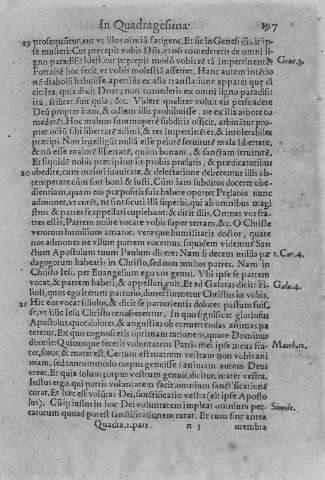 In Quadragesima. 197
19 prosequũtur, aut vt illos nimiũ fatigent. Et sic in Genesi dixit ip-
se mulieri: Cur præcepit vobis Dñs, vt nõ comederetis de omni li-
gno paradisi? Idest, cur præcepit modò vobis rẽ tã impertinentẽ? Genes. 3.
Fortassè hoc fecit, vt vobis molestiã afferret. Hanc autem intẽtio
nẽ diaboli habuisse, aperiẽs ex alia translatione apparet quæ di
cit ita, quia dixit Deus; non comederetis ex omni ligno paradisi?
ira, scilicet fuit quia, &c. Videte qualiter voluit eis persuadere
Deũ propter iram, & odium illis prohibuisse, ne ex illa arbore co
mederẽt. Hoc malum suum opere subditis officit, arbitrãtur pro-
pter odiũ sibi libertatẽ adimi, & res impertinẽtes, & intolerabiles
præcipi. Non intelligũt nullã esse peiorẽ seruitutẽ mala libertate,
& nõ esse maiorẽ libertatẽ, quàm bonam, & sanctam seruitutẽ.
Et siquidẽ nobis præcipitur in probis prælaris, & prædicatoribus
20 obedire, cum maiori suauitate, & delectatione deberemus illis ob-
temperare cùm sint boni & iusti. Cùm iam subditos doceret obe-
dientiam, quam eos præpositis suis habere oportet Prælatos nunc
admonet, vt curẽt, ne sint sicuti illi superbi, qui ab omnibus magi
stros & patres se appellari cupiebant: & dicit illis, Omnes vos fra-
tres estis, Patrem nolite vocare vobis super terram, &c. O Christe
verorum humilium amator, veræque humilitatis doctor, quare
nos admones ne vllum patrem vocemus, siquidem videmus San
ctum Apostolum tuum Paulum dicere: Nam si decem millia pæ 1. Cor. 4.
dagogorum habeatis in Christo, sed non multos patres. Nam in
Christo Iesu per Euangelium ego vos genui. Vbi ipse se patrem
vocat, & patrem haberi, & appellari vult. Et ad Galatas dicit: Fi Gala. 4.
lioli, quos ego iterum parturio, donec formetur Christus in vobis,
21 Hic eos vocat filiolos, & dicit se parturientis dolores passum fuis-
se, vt ille Iesu Christo renascerentur. In quo significat gloriosus
Apostolus, quot dolores, & angustias ob conuertendas animas pa
teretur. Ex quo cognosceris optimam rationem, quare Dominus
dixerit: Quicunque fecerit voluntatem Patris mei ipse meus fra- Matth. 12.
ter, soror, & mater est. Certum est matrem vestram non vobis ani
mam, sed tantummodo corpus genuisse: animam autem Deus
creat. Et quia solum corpus vestrum genuit, dicitur mater vestra.
Iustus ergo, qui patris voluntatem facit, omnium sanctificationẽ
curat. Est iste est volũtas Dei, sanctificatio vestra (ait ipse Aposto
lus). Cũq; iustus in hoc Dei voluntatem impleat omnium pec-
catorum quoad potest sanctificationem curat. Et cum sint antea Simile.
Quadra. 1. pars. n 3 membra